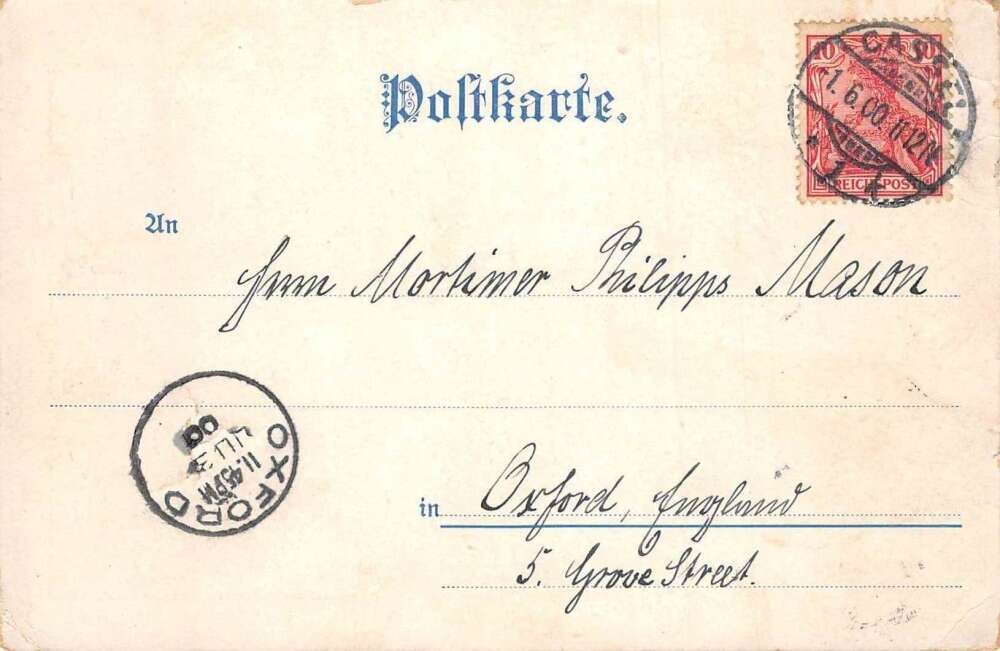 Postkarte.
10 10
REICHSPOST
CASSEL
1.6.00.11-12N.
* 1 k *
An
Herrn Mortimer Philipps Mason
OXFORD
11.45PM
JU 3
00
in Oxford, England
5. Grove Street.